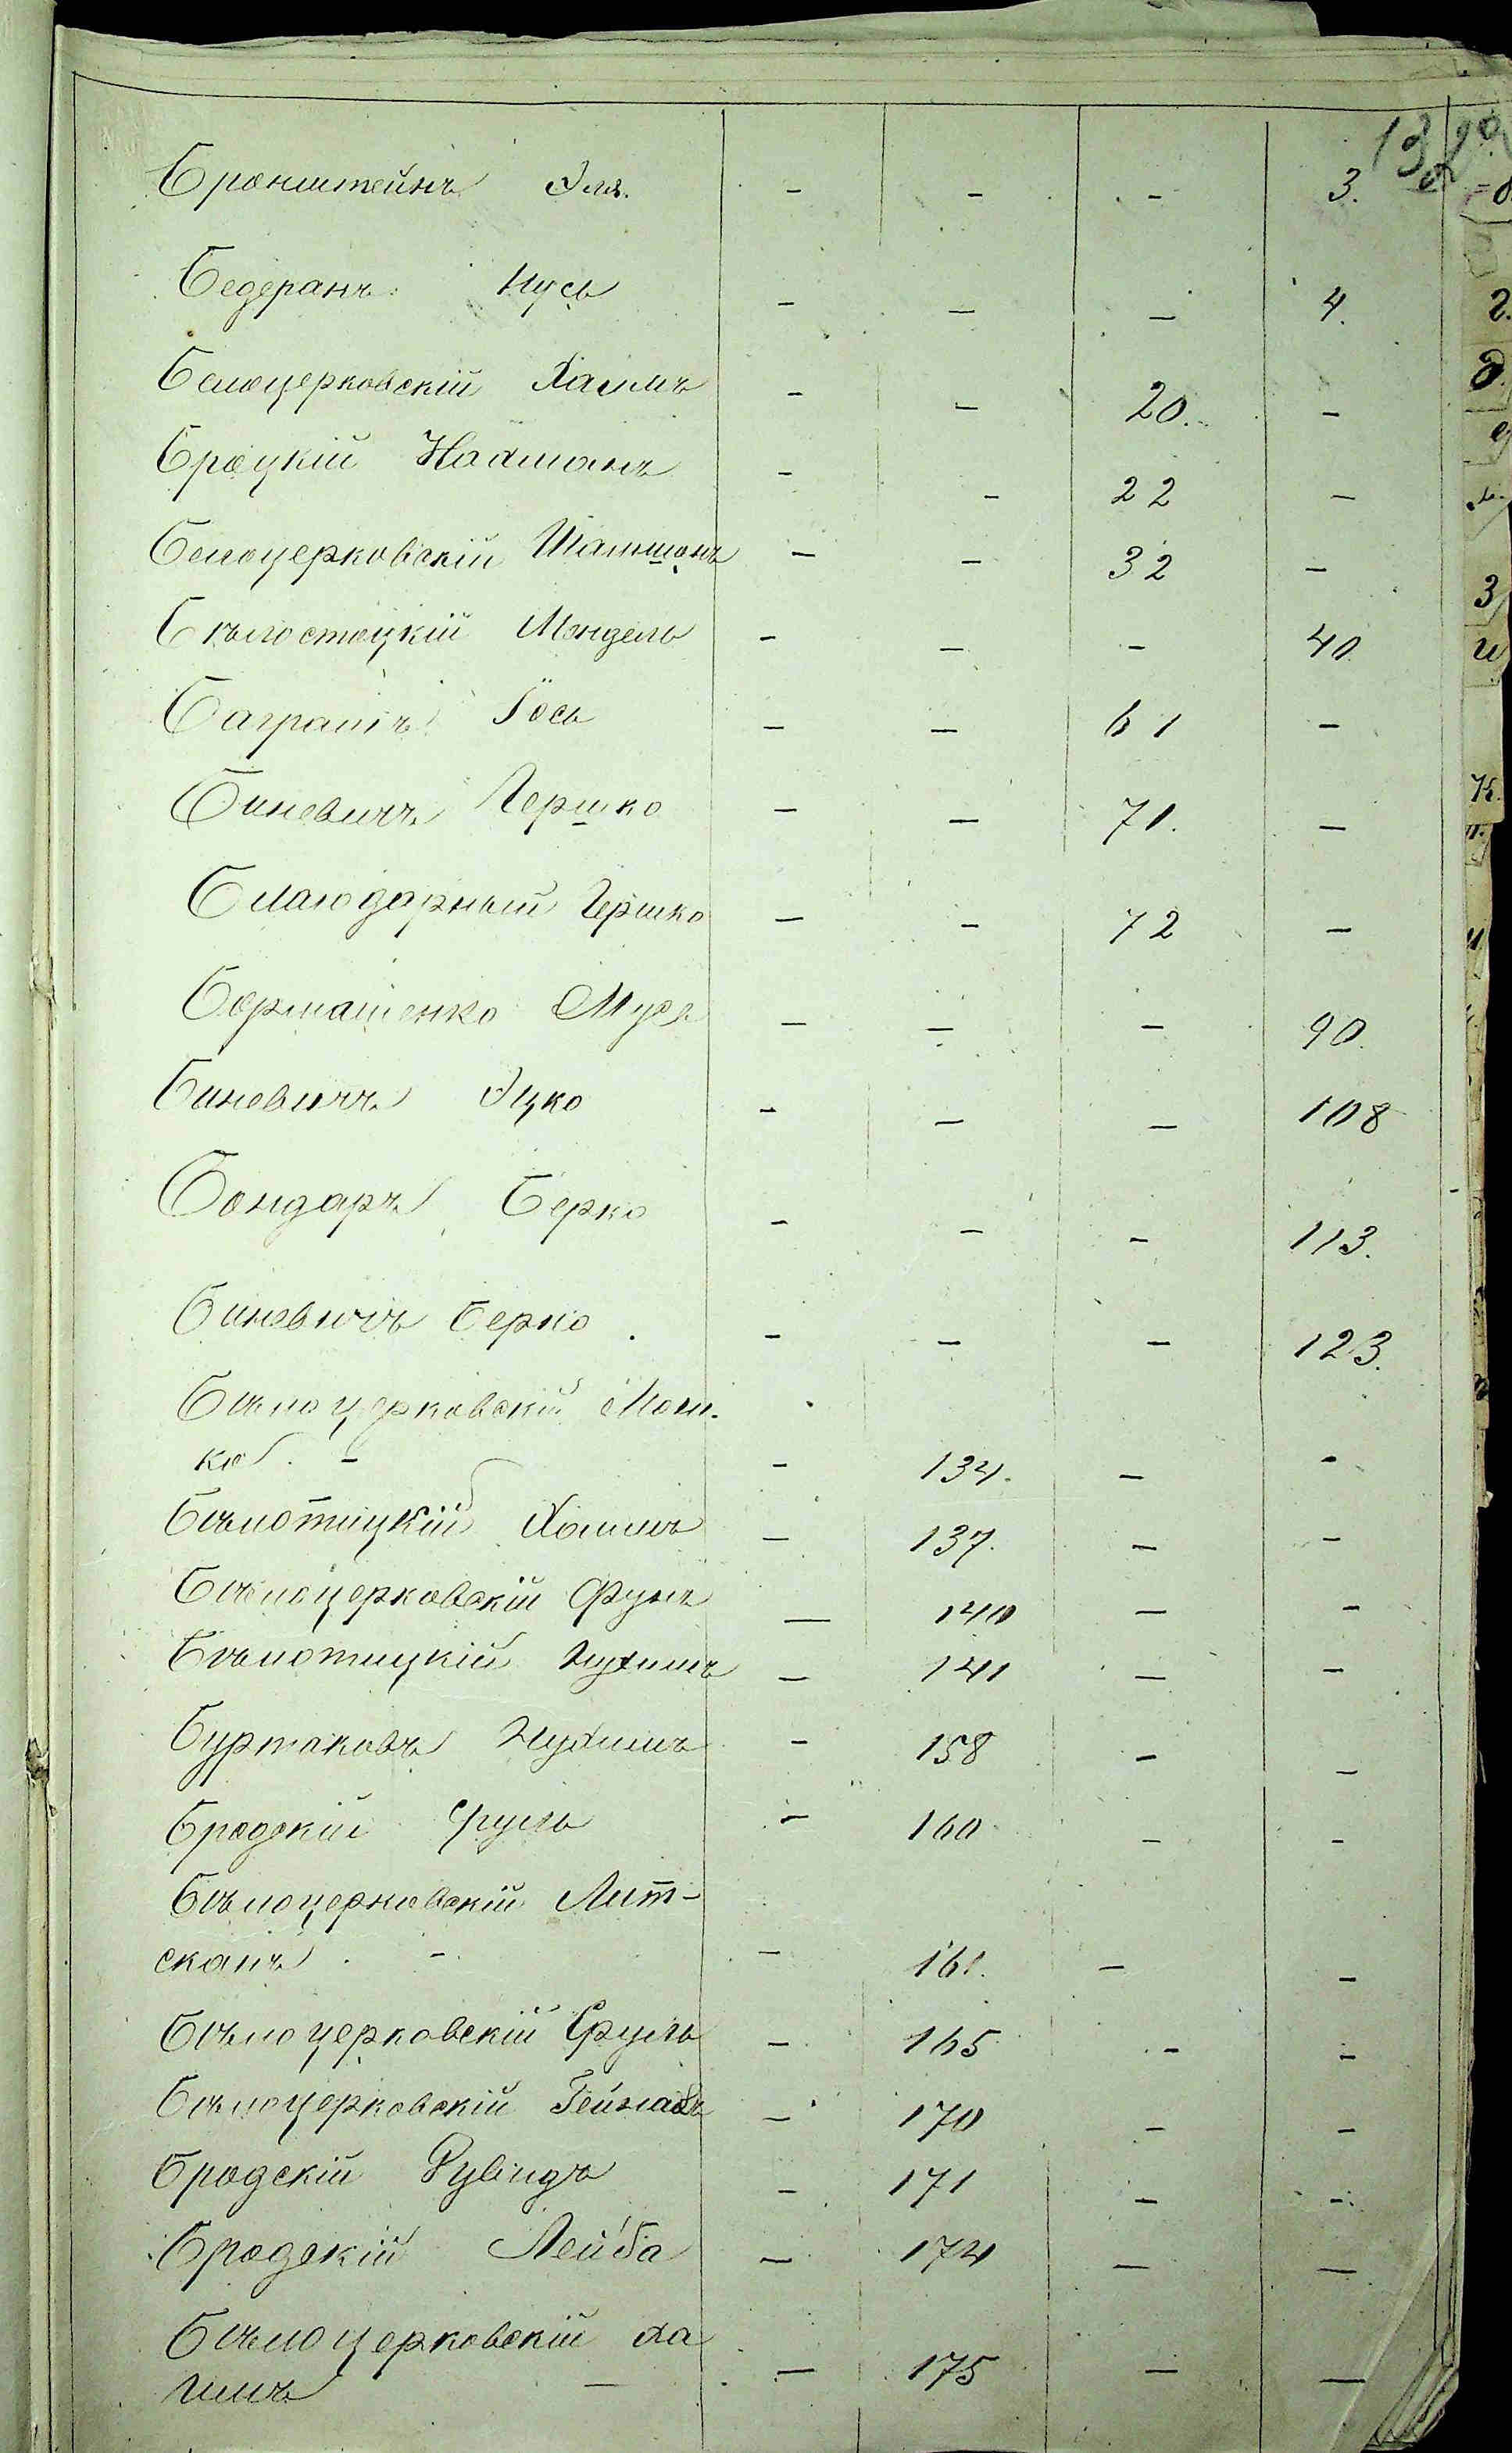 132
Бронштейнъ Эля. - - - 3.
Бедеранъ Нусь - - - 4.
Белоцерковскій Хаимъ - - 20. -
Броцкій Нахманъ - - 22 -
Белоцерковскій Шамшонъ - - 32 -
Бѣлостоцкій Мендель - - - 40
Баграшъ Іось - - 61 -
Биневичъ Гершко - - 71. -
Благодарный Гершко - - 72 -
Бормашенко Мусь - - - 90.
Биневичъ Ицко - - - 108
Бондаръ Берко - - - 113.
Биневичъ Берко - - - 123.
Бѣлоцерковскій Мош-
ко - - 134. - -
Бѣлотицкій Хаимъ - 137. - -
Бѣлоцерковскій - 140 - -
Бѣлотицкій Нухимъ - 141 - -
Буртаковъ Нухимъ - 158 - -
Бродскій Сруль - 160 - -
Бѣлоцерковскій
- - 161. - -
Бѣлоцерковскій Сруль - 165 - -
Бѣлоцерковскій - 170 - -
Бродскій Рувинъ - 171 - -
Бродскій Лейба - 174 - -
Бѣлоцерковскій Ха
имъ - - 175 - -